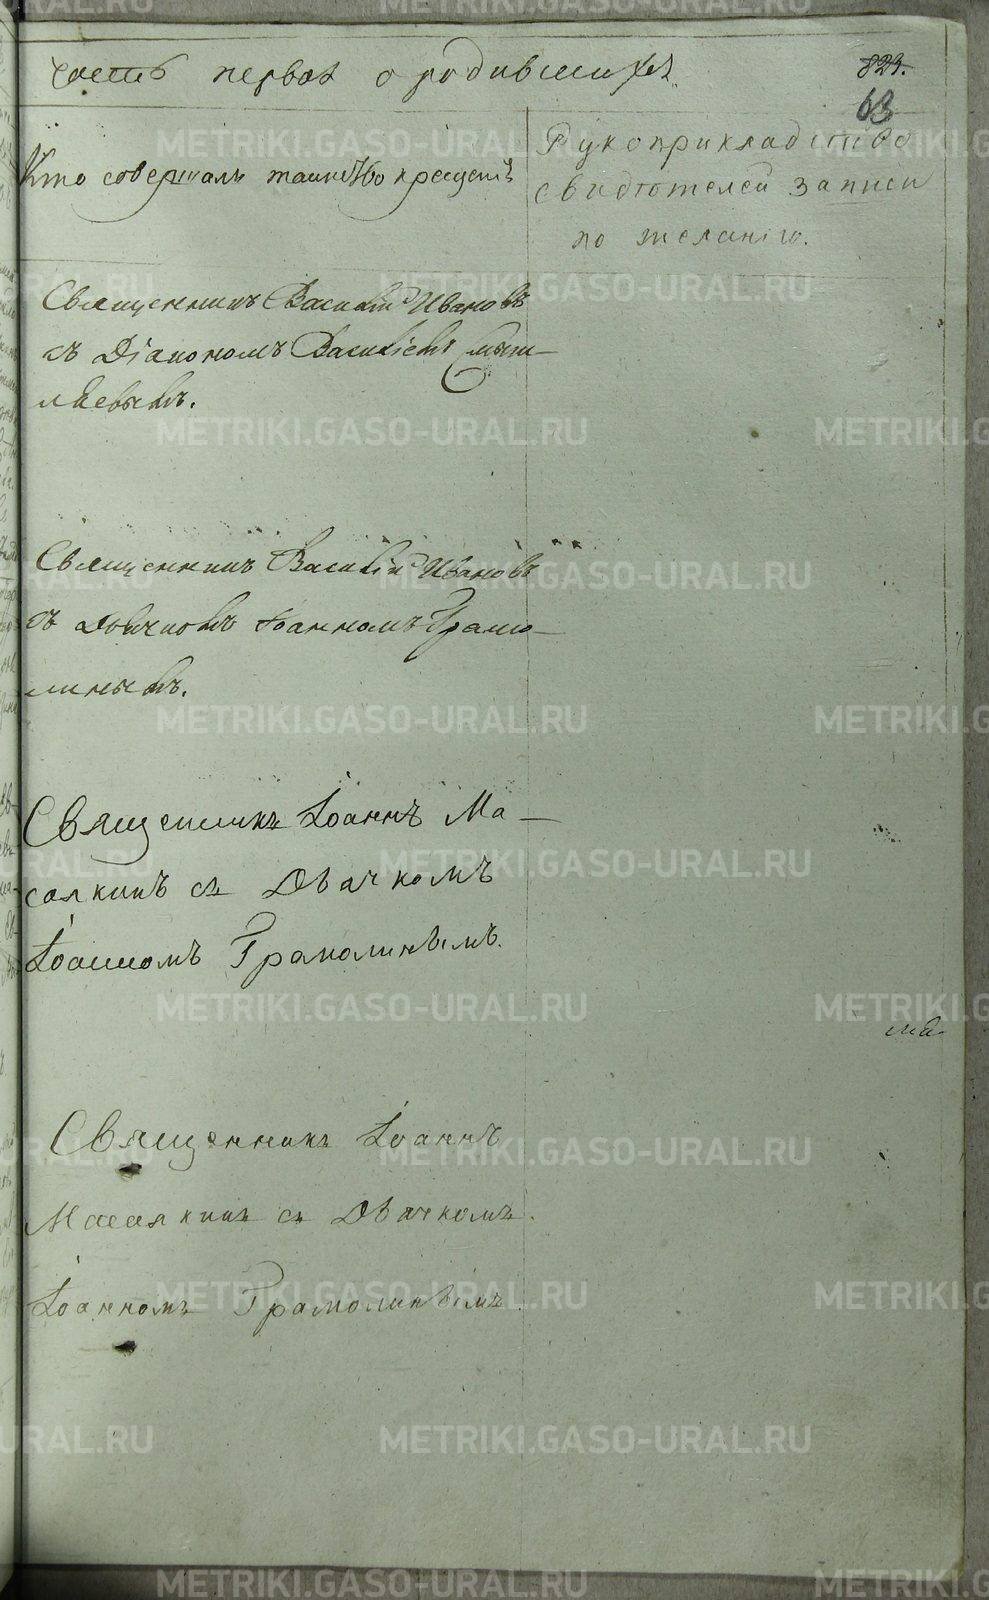 часть первая о родившихся
823.
63
Кто совершалъ таинство крещенія
Рукоприкладство
свидѣтелей записи
по желанію.
Священникъ Василій Ивановъ
съ Діакономъ Василіемъ Смыш-
ляевымъ.
Священникъ Василій Ивановъ
съ Дьячкомъ Іоанномъ Грамо-
линымъ.
Священникъ Іоаннъ Ма-
салкинъ съ Дьячкомъ
Іоанномъ Грамолинымъ.
Священникъ Іоаннъ
Масалкинъ съ Дьячкомъ.
Іоанномъ Грамолинымъ.
METRIKI.GASO-URAL.RU